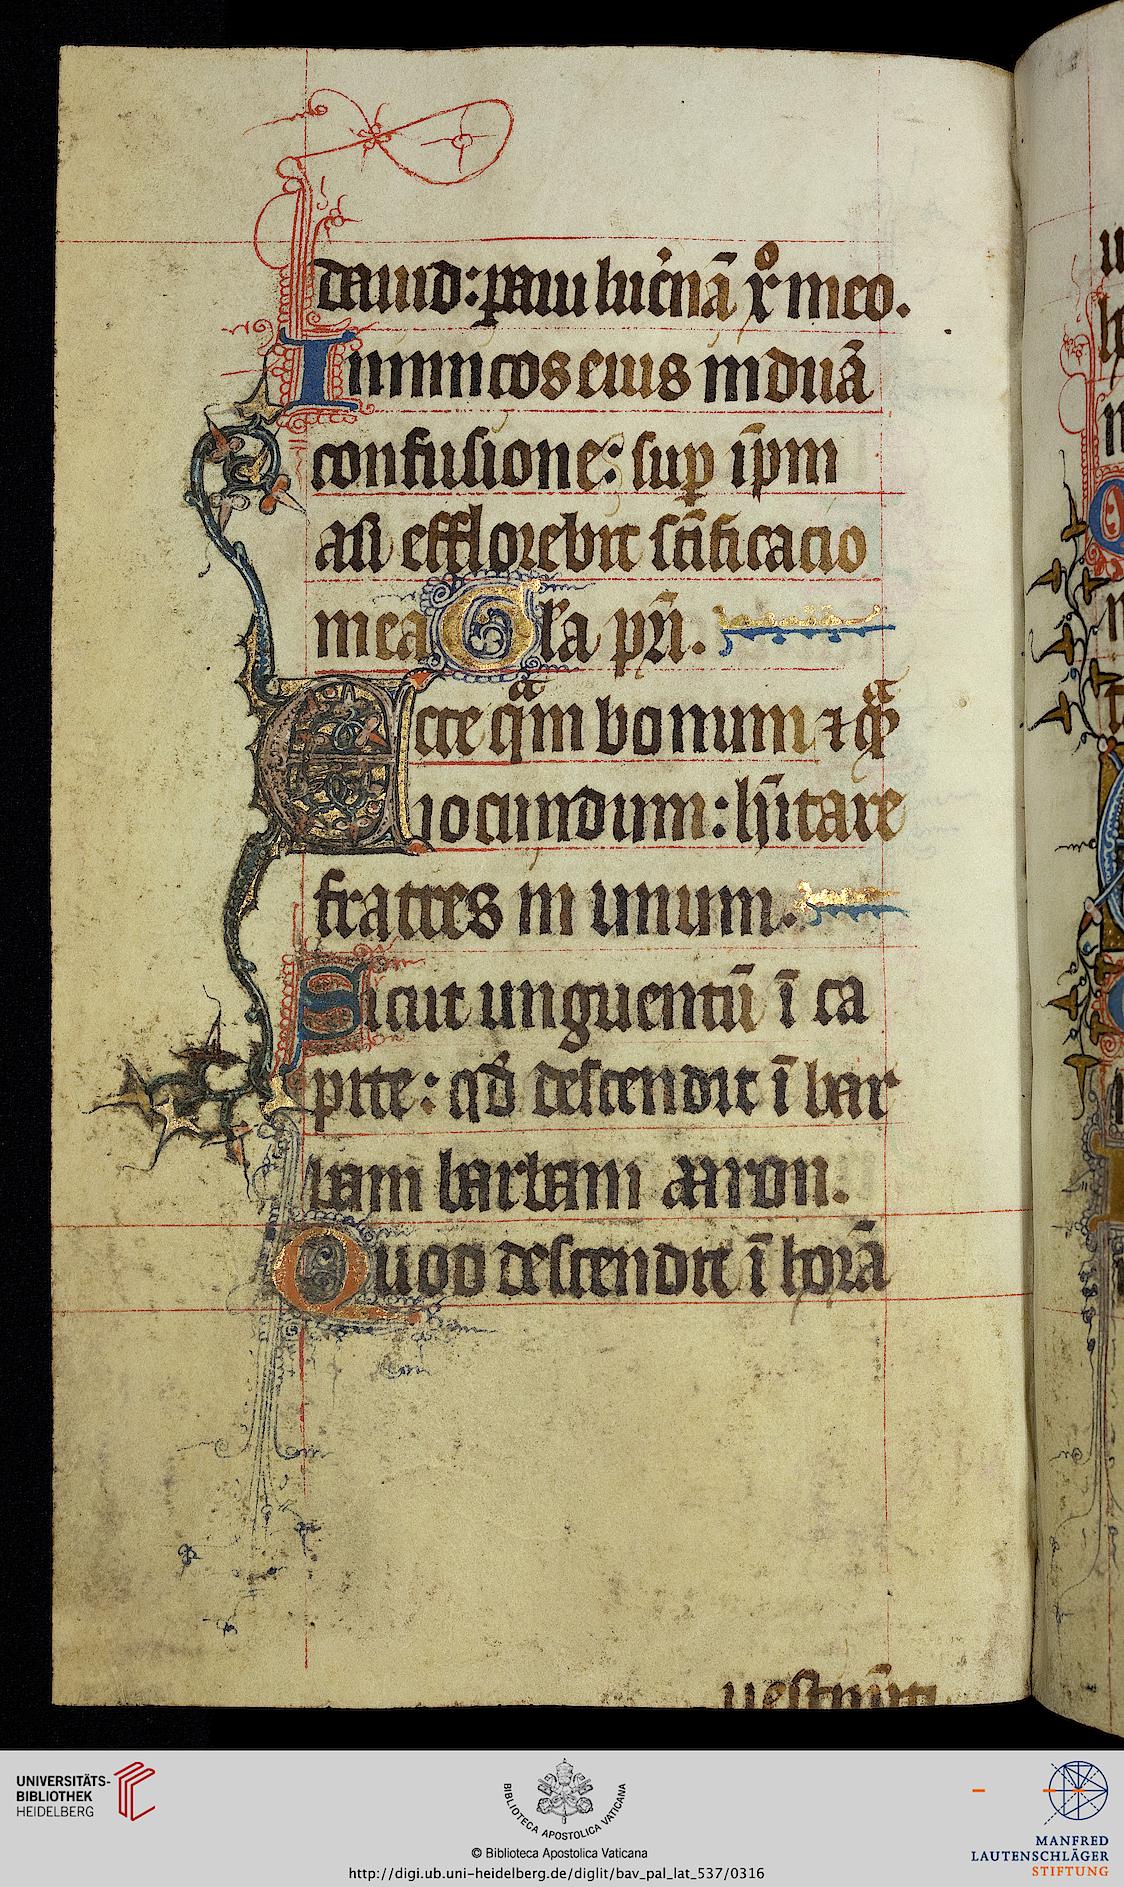 dauid: paraui lucernā xp̄o meo.
Inimicos eius induā
confusione: sup ip̄m
aū efflorebit sc̄ificacio
mea Gl̄a pr̄i.
Ecce qͣm bonum ⁊ qͣ
iocundum: hītare
fratres in unum.
Sicut unguentū ī ca
pite: qd̄ descendit ī bar
bam barbam aaron.
Quod descendit ī horā
uestimēti
UNIVERSITÄTS-
BIBLIOTHEK
HEIDELBERG
BIBLIOTECA APOSTOLICA VATICANA
© Biblioteca Apostolica Vaticana
http://digi.ub.uni-heidelberg.de/diglit/bav_pal_lat_537/0316
MANFRED
LAUTENSCHLÄGER
STIFTUNG